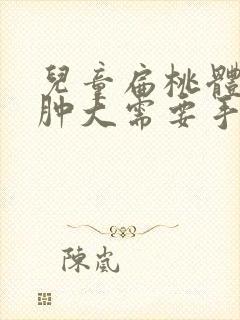 兒童扁桃體
肿大需要手
陳嵐